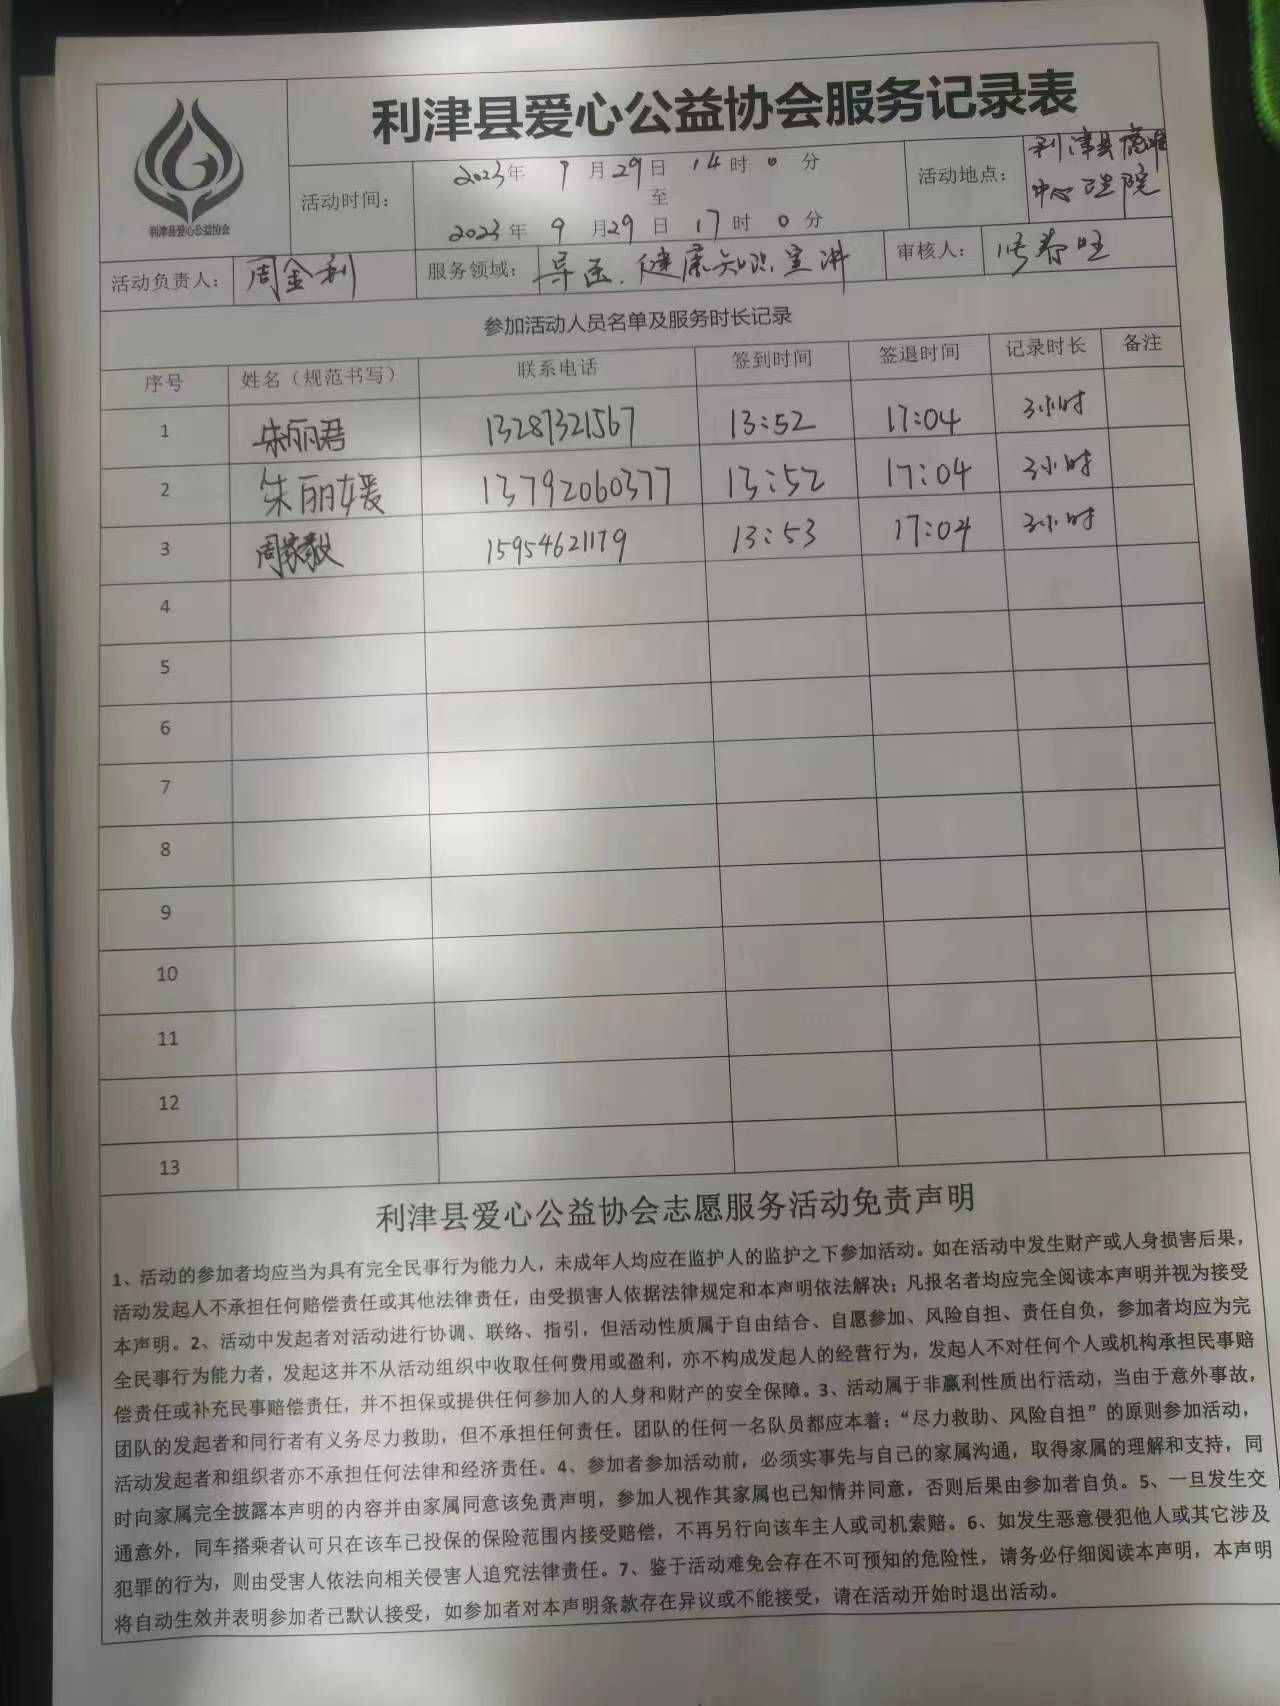 利津县爱心公益协会服务记录表
利津县爱心公益协会
活动时间：
2023年 9月29日 14时0分
至
2023年 9月29日 17时0分
活动地点：
利津县
中心 院
活动负责人：
周金利
服务领域：
导医、健康知识宣讲
审核人：
参加活动人员名单及服务时长记录
序号 姓名（规范书写） 联系电话 签到时间 签退时间 记录时长 备注
1 朱丽君 13287321567 13:52 17:04 3小时
2 朱丽媛 13792060377 13:52 17:04 3小时
3 周 15954621179 13:53 17:04 3小时
4
5
6
7
8
9
10
11
12
13
利津县爱心公益协会志愿服务活动免责声明
1、活动的参加者均应当为具有完全民事行为能力人，未成年人均应在监护人的监护之下参加活动。如在活动中发生财产或人身损害后果，
活动发起人不承担任何赔偿责任或其他法律责任，由受损害人依据法律规定和本声明依法解决；凡报名者均应完全阅读本声明并视为接受
本声明。2、活动中发起者对活动进行协调、联络、指引，但活动性质属于自由结合、自愿参加、风险自担、责任自负，参加者均应为完
全民事行为能力者，发起这并不从活动组织中收取任何费用或盈利，亦不构成发起人的经营行为，发起人不对任何个人或机构承担民事赔
偿责任或补充民事赔偿责任，并不担保或提供任何参加人的人身和财产的安全保障。3、活动属于非赢利性质出行活动，当由于意外事故，
团队的发起者和同行者有义务尽力救助，但不承担任何责任。团队的任何一名队员都应本着：“尽力救助、风险自担”的原则参加活动，
活动发起者和组织者亦不承担任何法律和经济责任。4、参加者参加活动前，必须实事先与自己的家属沟通，取得家属的理解和支持，同
时向家属完全披露本声明的内容并由家属同意该免责声明，参加人视作其家属也已知情并同意，否则后果由参加者自负。5、一旦发生交
通意外，同车搭乘者认可只在该车已投保的保险范围内接受赔偿，不再另行向该车主人或司机索赔。6、如发生恶意侵犯他人或其它涉及
犯罪的行为，则由受害人依法向相关侵害人追究法律责任。7、鉴于活动难免会存在不可预知的危险性，请务必仔细阅读本声明，本声明
将自动生效并表明参加者已默认接受，如参加者对本声明条款存在异议或不能接受，请在活动开始时退出活动。